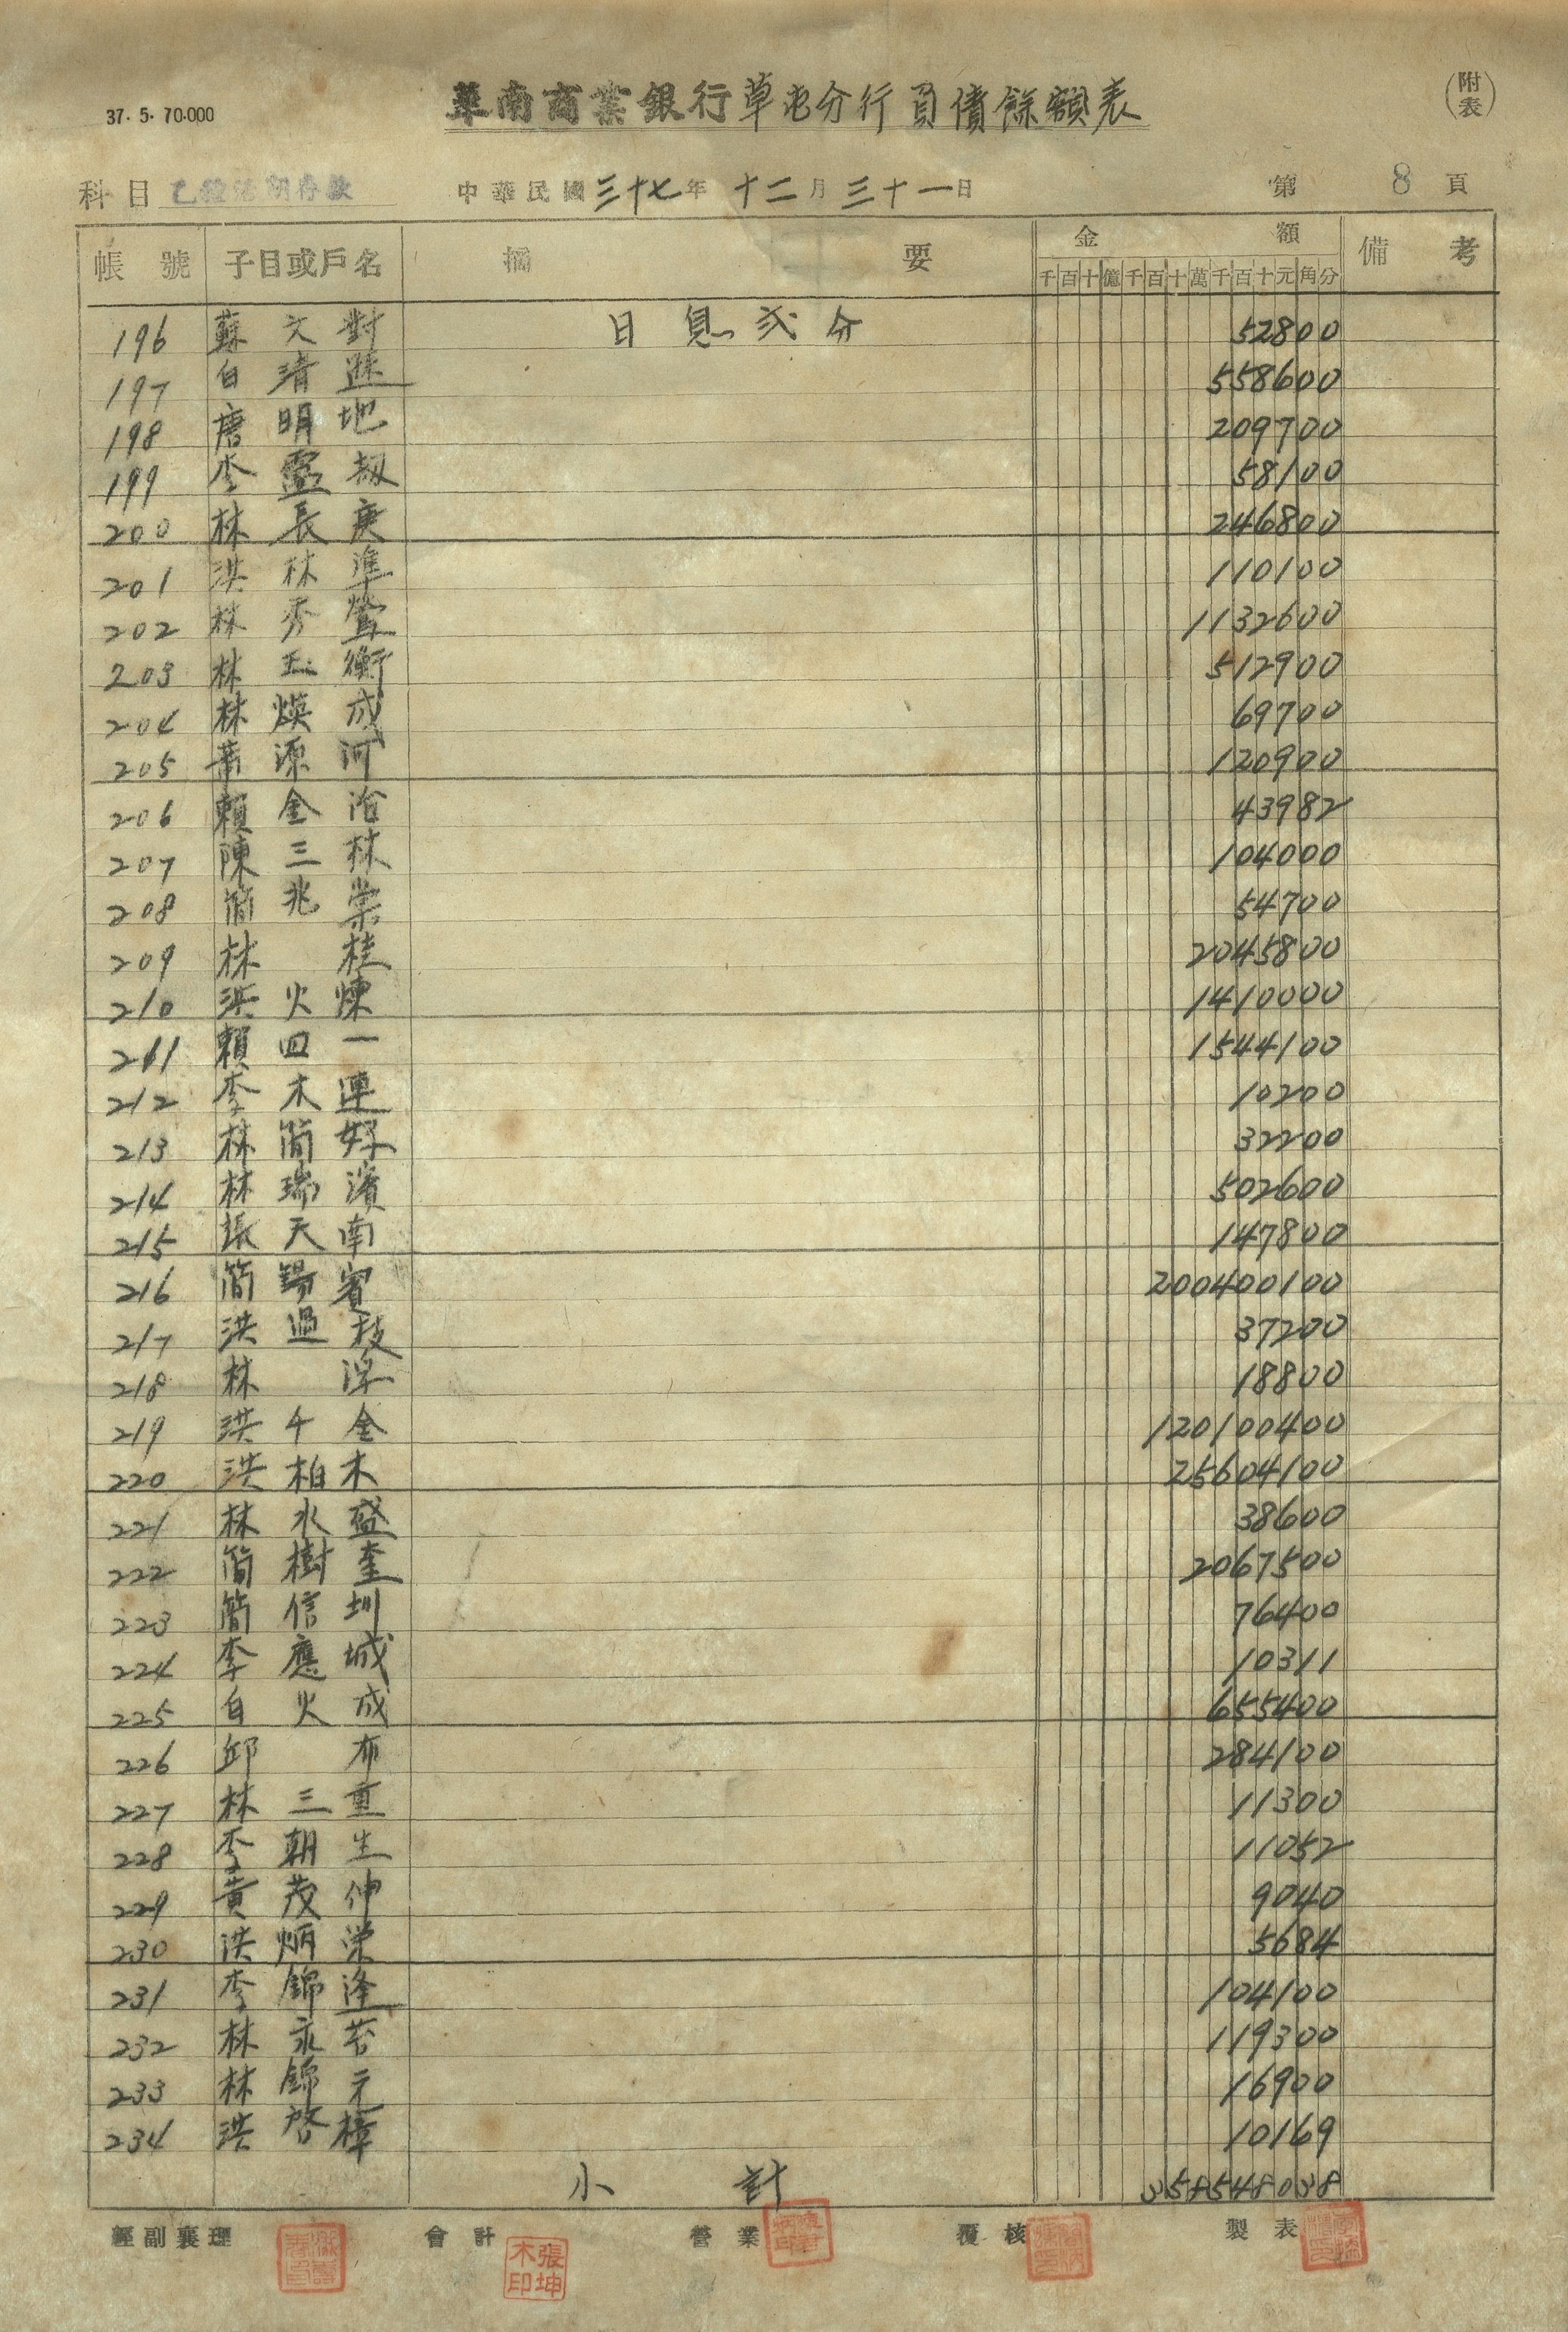 37. 5. 70.000
華南商業銀行草屯分行負債餘額表
(附表)
科目 乙種活期存款 中華民國三十七年十二月三十一日 第8頁
帳號 子目或戶名 摘要 金額 備考
千百十億千百十萬千百十元角分
196 蘇文對 日息弍分 52800
197 白清 558600
198 唐明地 209700
199 李 58100
200 林長庚 246800
201 洪林準 110100
202 林秀鶯 1132600
203 林玉衡 512900
204 林煥成 69700
205 蕭源河 120900
206 賴金治 43982
207 陳三林 104000
208 簡兆 54700
209 林桂 2045800
210 洪火煉 1410000
211 賴四一 1544100
212 李木連 10200
213 林簡好 32200
214 林瑞濱 502600
215 張天南 147800
216 簡錫賓 200400100
217 洪過枝 37200
218 林 18800
219 洪千金 120100400
220 洪柏木 25604100
221 林水盛 38600
222 簡樹奎 2067500
223 簡信圳 76400
224 李應城 10311
225 白火成 655400
226 邱布 284100
227 林三重 11300
228 李朝生 11052
229 黃茂伸 9040
230 洪炳栄 5684
231 李錦逢 104100
232 林永若 119300
233 林錦元 16900
234 洪啓樟 10169
小計 358548038
經副襄理 會計 營業 覆核 製表
張坤木印